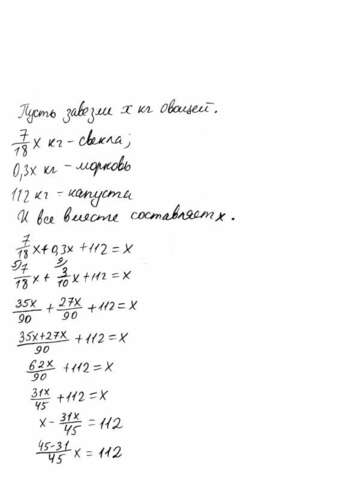 Пусть завезли x кг овощей.
7/18 x кг – свекла;
0,3x кг – морковь
112 кг – капуста
И все вместе составляет x.
7/18 x + 0,3x + 112 = x
5) 7/18 x + 9) 3/10 x + 112 = x
35x/90 + 27x/90 + 112 = x
35x+27x/90 + 112 = x
62x/90 + 112 = x
31x/45 + 112 = x
x – 31x/45 = 112
45-31/45 x = 112